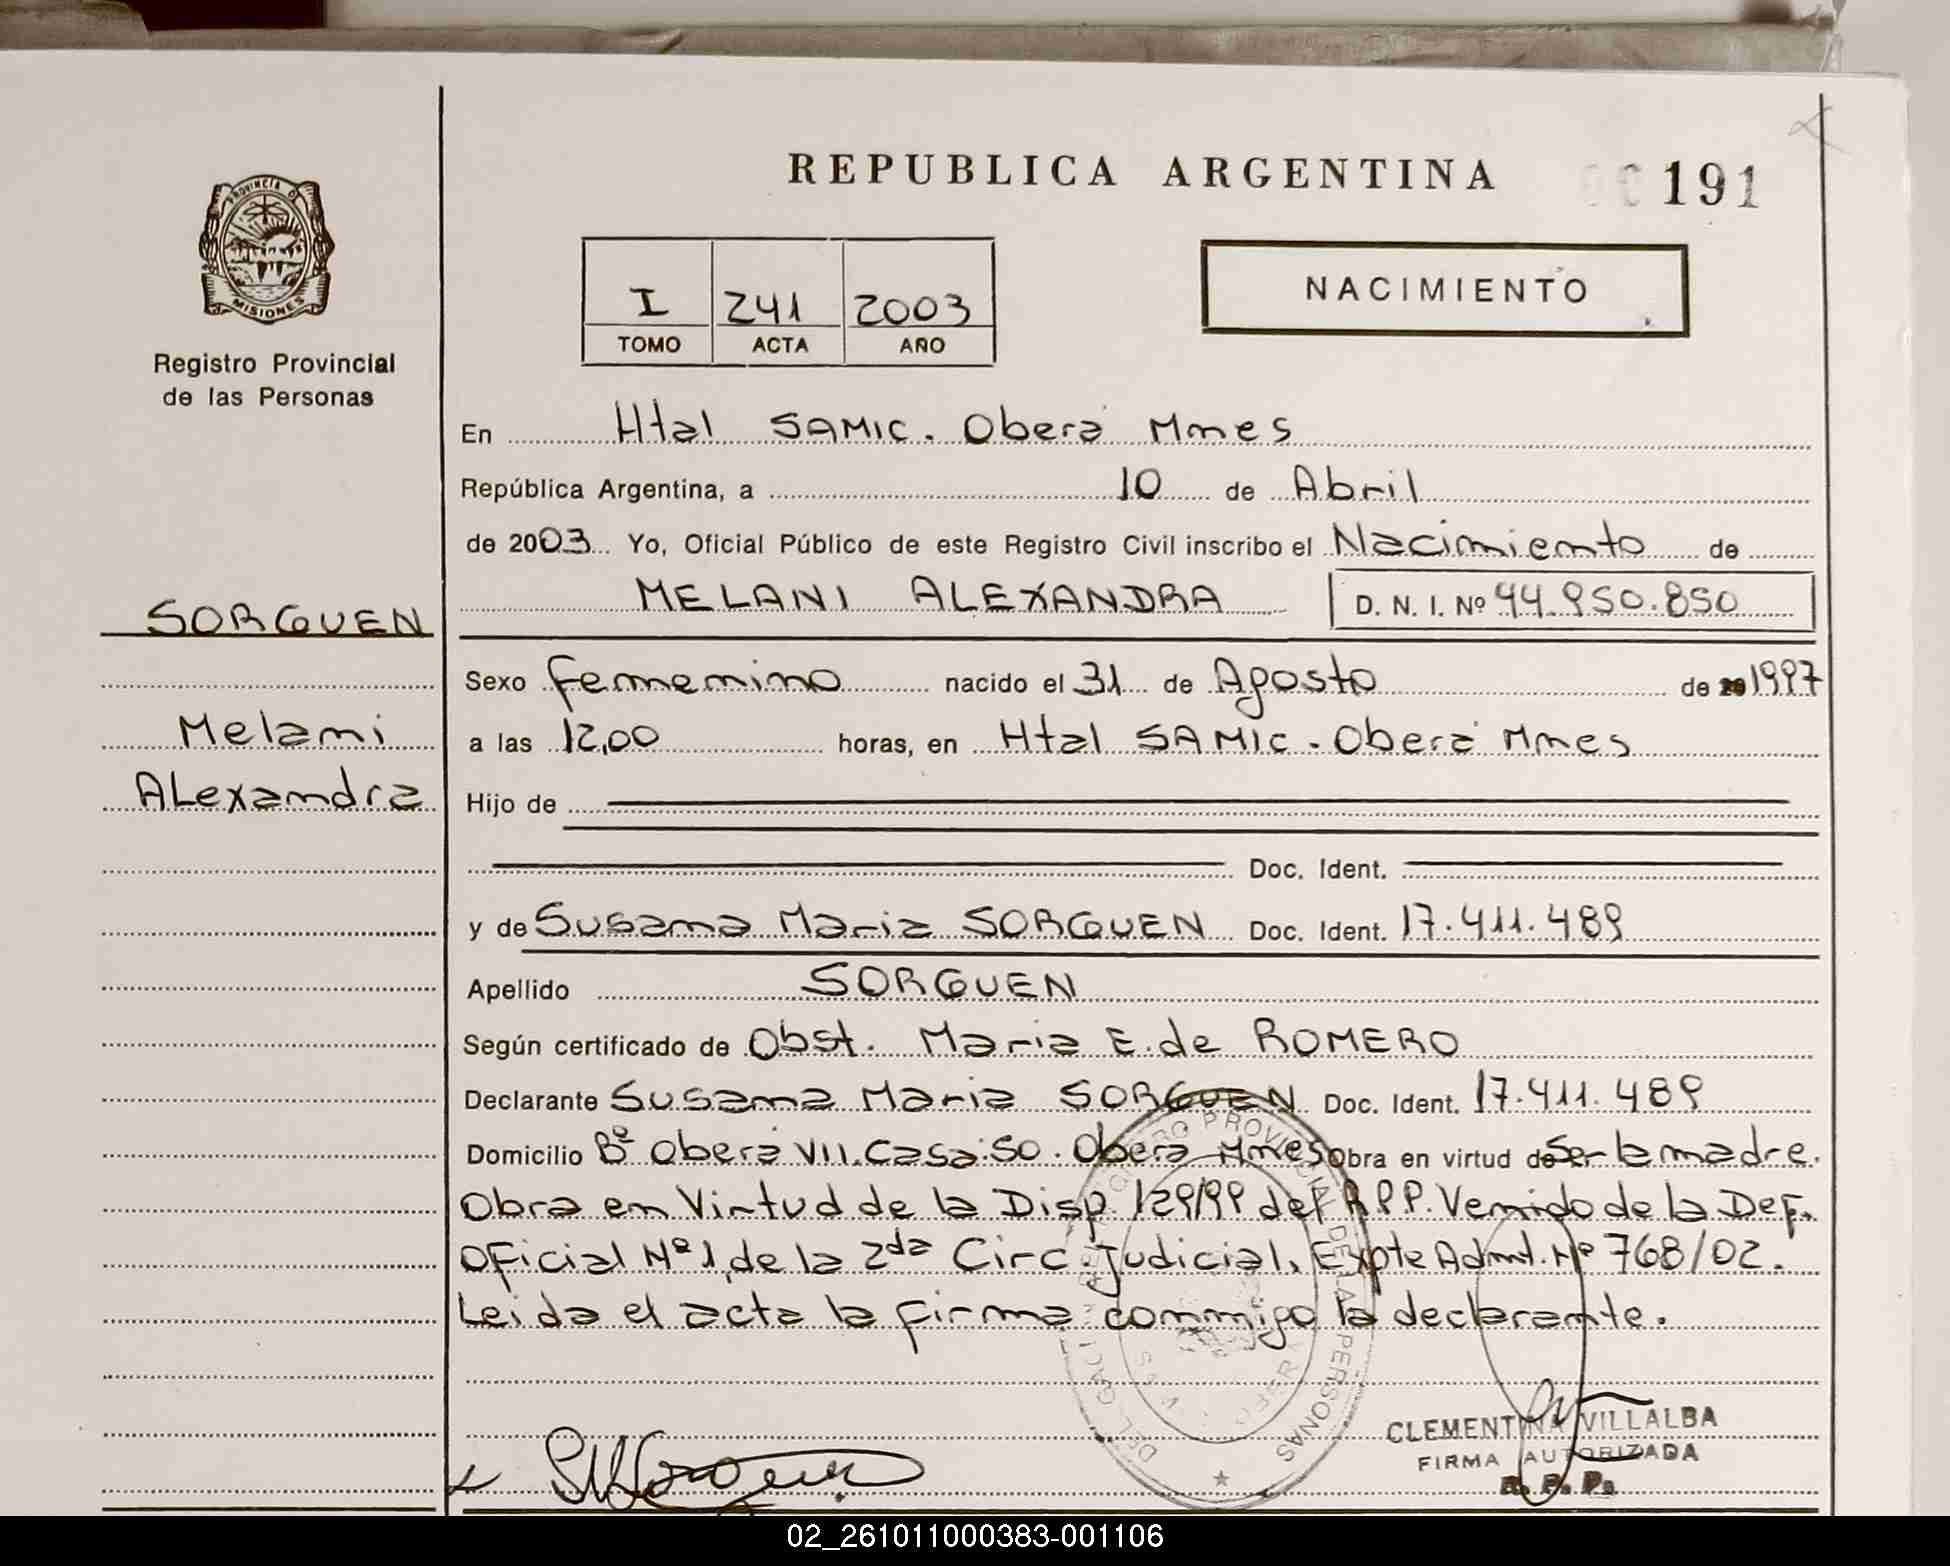 REPUBLICA ARGENTINA 191
PROVINCIA DE MISIONES
Registro Provincial
de las Personas
I 241 2003
TOMO ACTA AÑO
NACIMIENTO
En Htal SAMIC. Oberá Mnes
República Argentina, a 10 de Abril
de 2003 Yo, Oficial Público de este Registro Civil inscribo el Nacimiento de
MELANI ALEXANDRA D. N. I. Nº 44.950.850
SORGUEN
Sexo Femenino nacido el 31 de Agosto de 1997
Melani
a las 12,00 horas, en Htal SAMIC. Oberá Mnes
Alexandra
Hijo de
Doc. Ident.
y de Susana Maria SORGUEN Doc. Ident. 17.411.489
Apellido SORGUEN
Según certificado de Obst. Maria E. de ROMERO
Declarante Susana Maria SORGUEN Doc. Ident. 17.411.489
Domicilio Bº Oberá VII. Casa:50. Oberá Mnes Obra en virtud de Ser la madre.
Obra en Virtud de la Disp. 129/99 del R.P.P. Venido de la Def.
Oficial Nº 1, de la 2da Circ. Judicial, Expte Admt. Nº 768/02.
Leida el acta la firma conmigo la declarante.
CLEMENTINA VILLALBA
FIRMA AUTORIZADA
R. P. P.
02_261011000383-001106